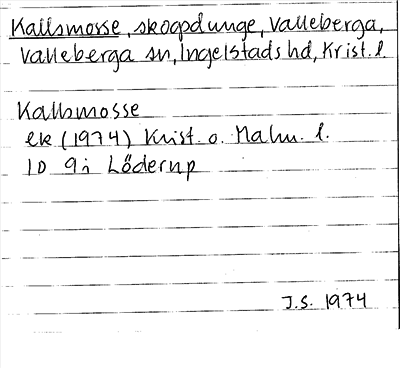 Kallsmosse, skogsdunge, Valleberga,
Valleberga sn, Ingelstads hd, Krist. l.
Kallsmosse
ek (1974) Krist. o. Malm. l.
1D 9i Löderup
J.S. 1974